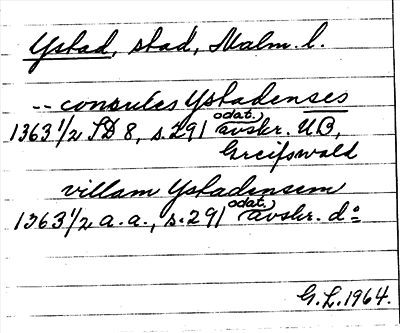 Ystad, stad, Malm. l.
-- consules Ystadenses
1363 1/2 SD 8, s. 291 odat. avskr. UB,
Greifswald
villam Ystadensem
1363 1/2 a. a., s. 291 odat. avskr. do
G. L. 1964.